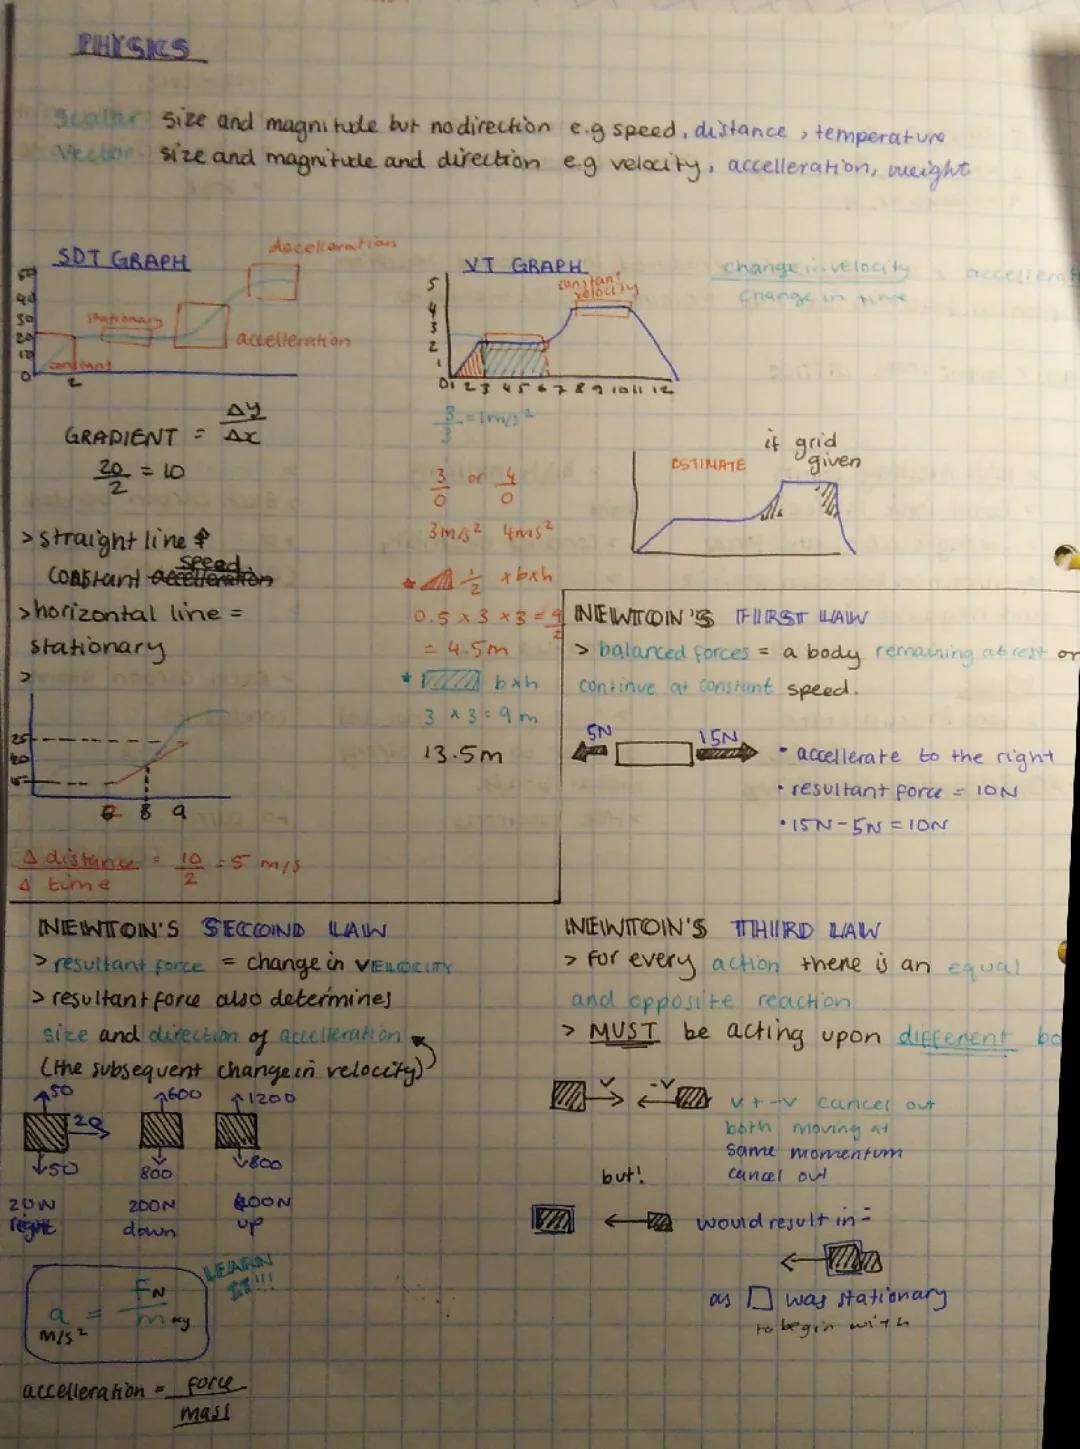 PHYSICS
Scalar size and magnitude but no direction e.g speed, distance, temperature
Vector size and magnitude and direction e.g velocity, accelleration, weight
SDT GRAPH
decelleration
50
40
30
20
10
0
stationary
accelleration
constant
2
GRADIENT = Δy
Δx
20 = 10
2
> straight line
constant accelleration speed
> horizontal line =
stationary
>
25
20
15
6 8 9
Δ distance = 10 = 5 m/s
Δ time 2
VT GRAPH
constant
velocity
5
4
3
2
1
0 1 2 3 4 5 6 7 8 9 10 11 12
change in velocity accellerat
change in time
3 = 1m/s²
3
3 or 4
0 0
3m/s² 4ms²
½ x b x h
0.5 x 3 x 3 = 9
2
= 4.5m
b x h
3 x 3 = 9m
13.5m
if grid
given
ESTIMATE
NEWTON'S FIRST LAW
> balanced forces = a body remaining at rest or
continue at constant speed.
5N 15N
• accellerate to the right
• resultant force = 10N
• 15N - 5N = 10N
NEWTON'S SECOND LAW
> resultant force = change in VELOCITY
> resultant force also determines
size and direction of accelleration
(the subsequent change in velocity)
50 600 1200
20
50 800 800
20N 200N 400N
right down up
LEARN
IT!!!
a = F N
m/s² m kg
accelleration = force
mass
NEWTON'S THIRD LAW
> for every action there is an equal
and opposite reaction
> MUST be acting upon different bo
v -v
v + -v cancel out
both moving at
same momentum
cancel out
but!
would result in =
as was stationary
to begin with